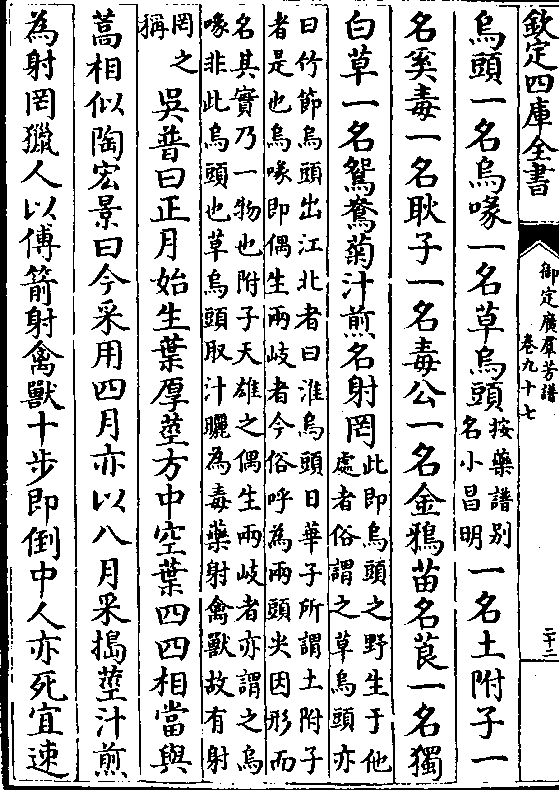 欽定四庫全書
御定廣羣芳譜
卷九十七
二十二
烏頭一名烏喙一名草烏頭按藥譜別名小昌明一名土附子一
名奚毒一名耿子一名毒公一名金鴉苗名莨一名獨
白草一名鴛鴦菊汁煎名射罔此即烏頭之野生于他處者俗謂之草烏頭亦
曰竹節烏頭出江北者曰淮烏頭日華子所謂土附子
者是也烏喙即偶生兩岐者今俗呼為兩頭尖因形而
名其實乃一物也附子天雄之偶生兩岐者亦謂之烏
喙非此烏頭也草烏頭取汁曬為毒藥射禽獸故有射
罔之稱吳普曰正月始生葉厚莖方中空葉四四相當與
蒿相似陶宏景曰今采用四月亦以八月采搗莖汁煎
為射罔獵人以傅箭射禽獸十步即倒中人亦死宜速